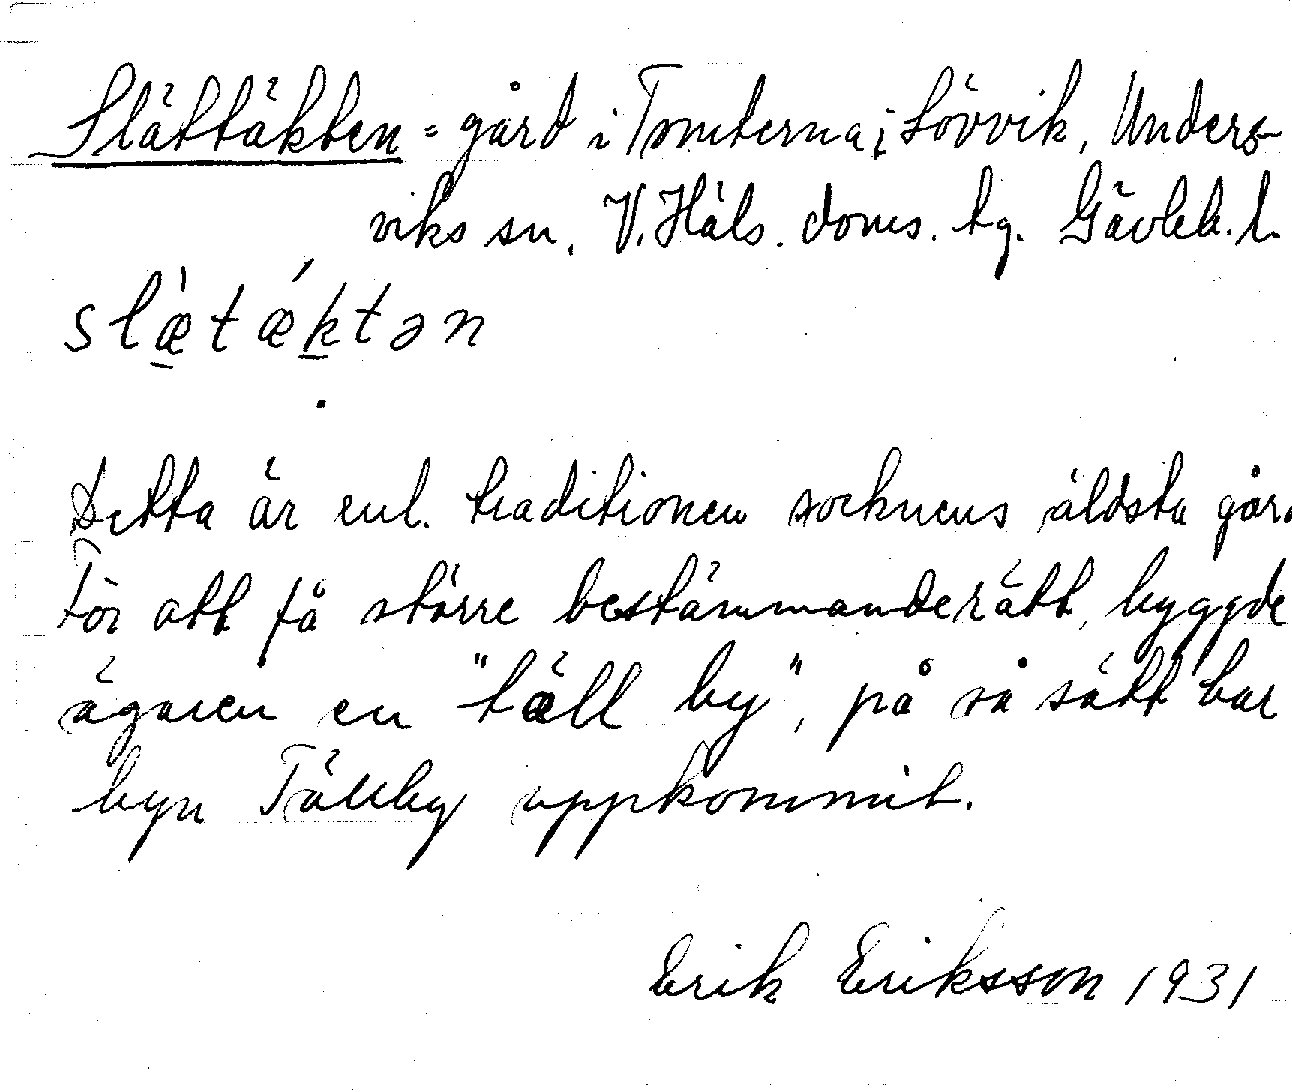 Slättäkten = gård i Tomterna, i Lövvik, Unders-
viks sn. V. Häls. doms. tg. Gävleb. l.
slæ̀tǽktən
Detta är enl. traditionen socknens äldsta går
För att få större bestämmanderätt, byggde
ägaren en "täll by", på så sätt har
byn Tällby uppkommit.
Erik Eriksson 1931